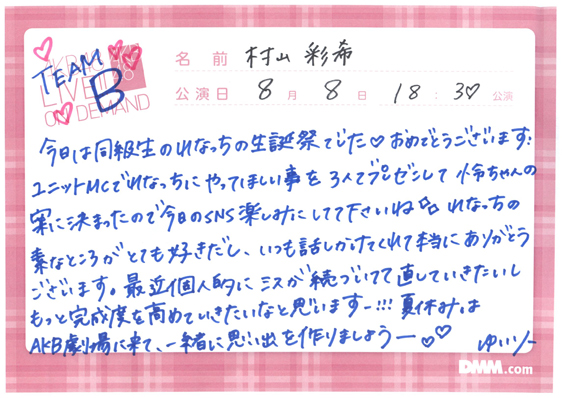 TEAM B
AKB48
LIVE!! ON DEMAND
名前 村山 彩希
公演日 8月8日 18:30♡公演
今日は同級生のれなっちの生誕祭でした♡おめでとうございます!
ユニットMCでれなっちにやってほしい事を3人でプレゼンして怜ちゃんの
案に決まったので今日のSNS楽しみにしてて下さいね☆ れなっちの
素なところがとても好きだし、いつも話しかけてくれて本当にありがとう
ございます。最近個人的にミスが続いてて直していきたいし
もっと完成度を高めていきたいなと思いますー!!! 夏休みは
AKB劇場に来て、一緒に思い出を作りましょうー♡♡ ゆいりー
DMM.com